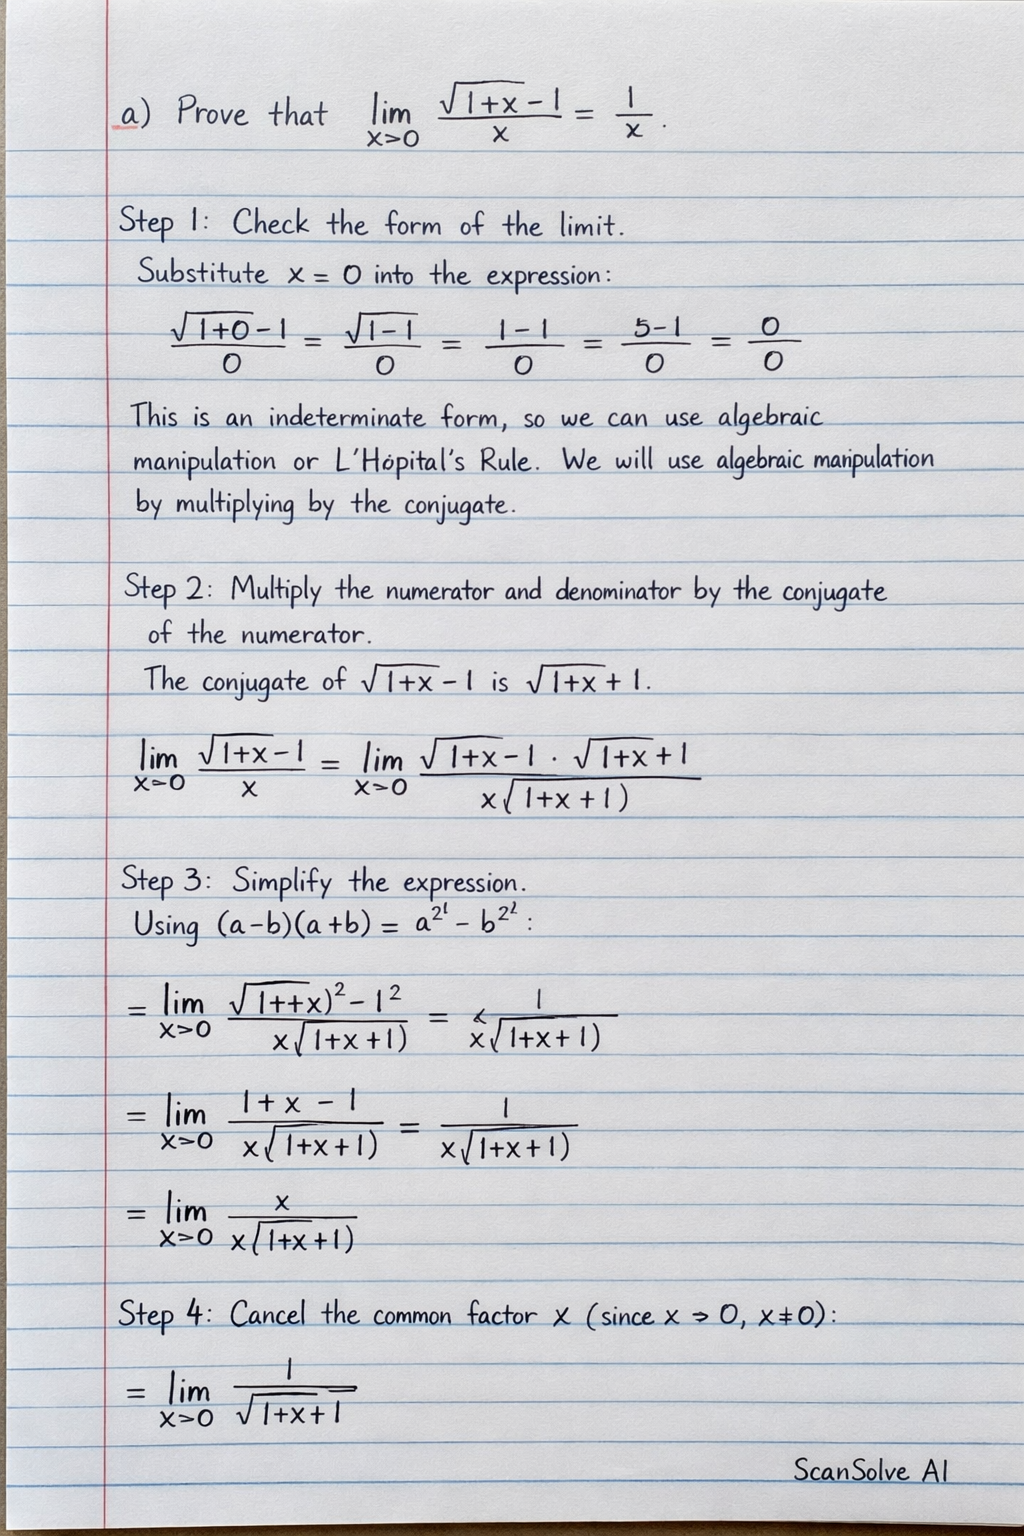 a) Prove that lim x>0 (√(1+x) - 1)/x = 1/x.
Step 1: Check the form of the limit.
Substitute x = 0 into the expression:
(√(1+0) - 1)/0 = √(1-1)/0 = (1-1)/0 = (5-1)/0 = 0/0
This is an indeterminate form, so we can use algebraic
manipulation or L'Hôpital's Rule. We will use algebraic manipulation
by multiplying by the conjugate.
Step 2: Multiply the numerator and denominator by the conjugate
of the numerator.
The conjugate of √(1+x) - 1 is √(1+x) + 1.
lim x>0 (√(1+x) - 1)/x = lim x>0 (√(1+x) - 1 · √(1+x) + 1)/(x√(1+x+1))
Step 3: Simplify the expression.
Using (a-b)(a+b) = a²¹ - b²²:
= lim x>0 (√1++x)² - 1²)/(x√(1+x+1)) = 1/(x√(1+x+1))
= lim x>0 (1+x-1)/(x√(1+x+1)) = 1/(x√(1+x+1))
= lim x>0 x/(x(√1+x+1))
Step 4: Cancel the common factor x (since x → 0, x≠0):
= lim x>0 1/(√(1+x)+1)
ScanSolve AI